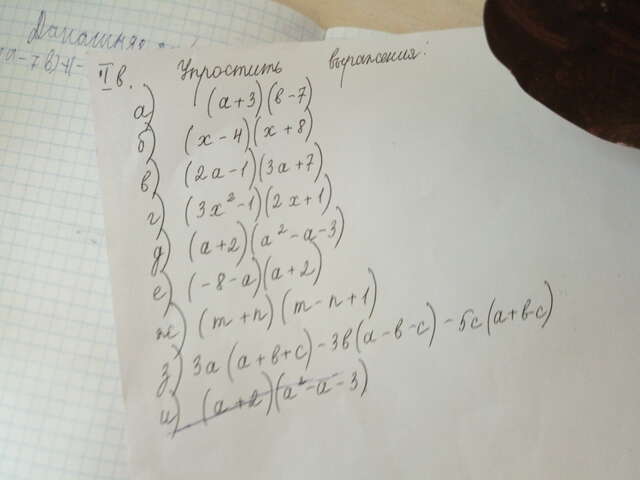 Домашняя
II в. Упростить выражения:
а) (a+3)(в-7)
б) (x-4)(x+8)
в) (2a-1)(3a+7)
г) (3x²-1)(2x+1)
д) (a+2)(a²-a-3)
е) (-8-a)(a+2)
ж) (m+n)(m-n+1)
з) 3a(a+в+c)-3в(a-в-c)-5c(a+в-c)
и) (a+2)(a²-a-3)